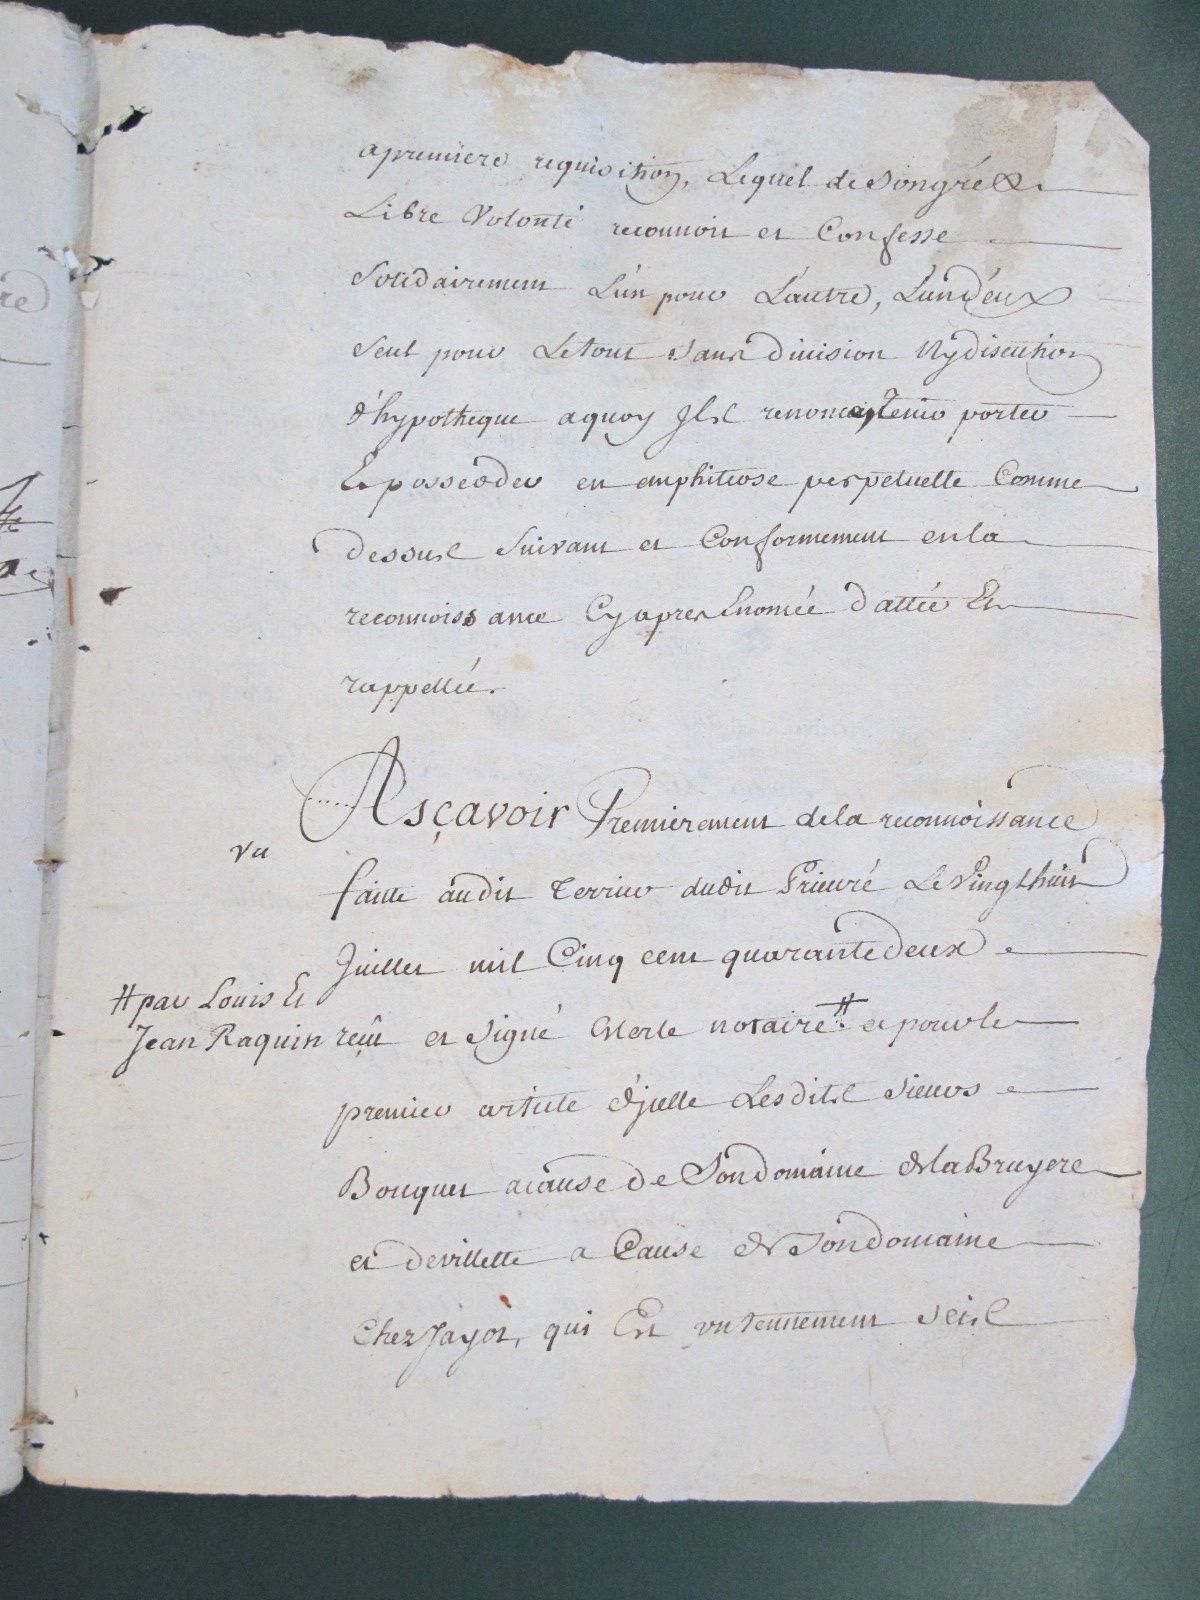 apremiere requisition, Lequel de Songré &
Libre Volonté reconnoit et Confesse
Solidairement L'un pour L'autre, L'un d'eux
Seul pour Le tout Sans division Ny discution
d'hypotheque aquoy Ils renoncent, tenir porter
Et posseder en emphiteose perpetuelle Comme
dessus Suivant et Conformement en la
reconnoissance Cy apres Enomée dattée Et
rappellée.
Asçavoir Premierement dela reconnoissance
vu
faitte audit Terrier dudit Prieuré Le Vingt huit
Juillet mil Cinq cent quarante deux
# par Louis Et
Jean Raquin reçüt et Signé Merle notaire # et pour le
premier article d'jcelle Lesdits Sieurs
Bouquet acause de Son domaine de la Bruyere
et devillette a Cause de Son domaine
Chez Jayot, qui Est un tennement Scis